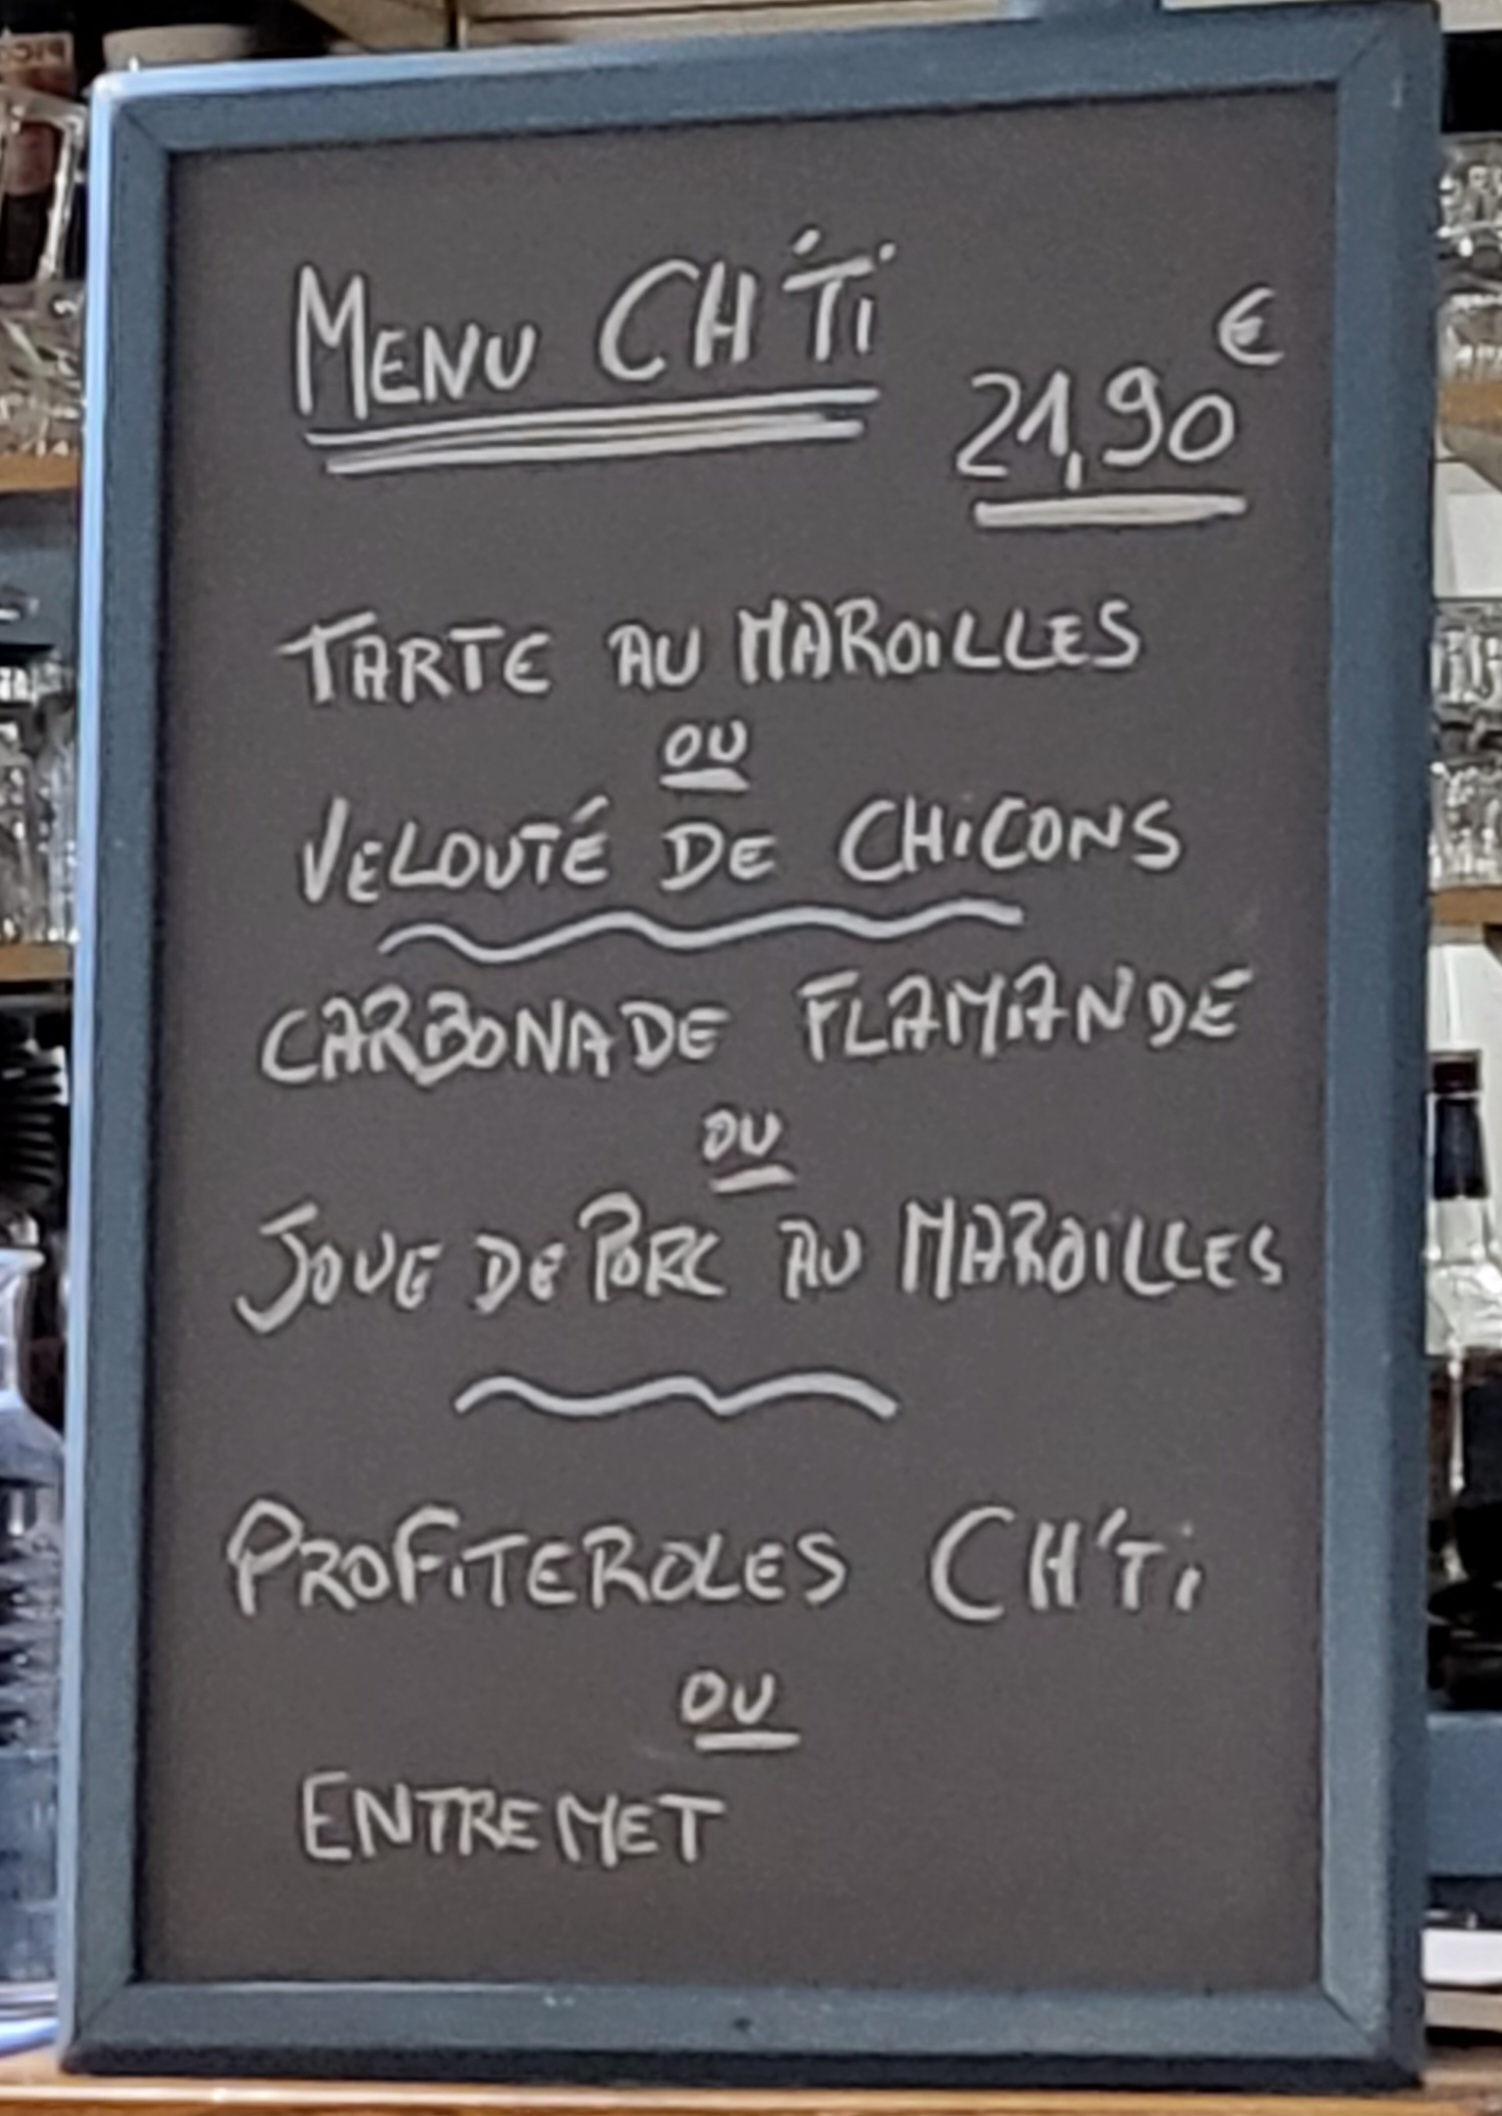 MENU CH'Ti
21,90€
TARTE AU MAROiLLES
OU
VELOUTÉ DE CHiCONS
CARBONADE FLAMANDE
OU
JOUE DE PORC AU MAROiLLES
PROFiTEROLES CH'Ti
OU
ENTREMET